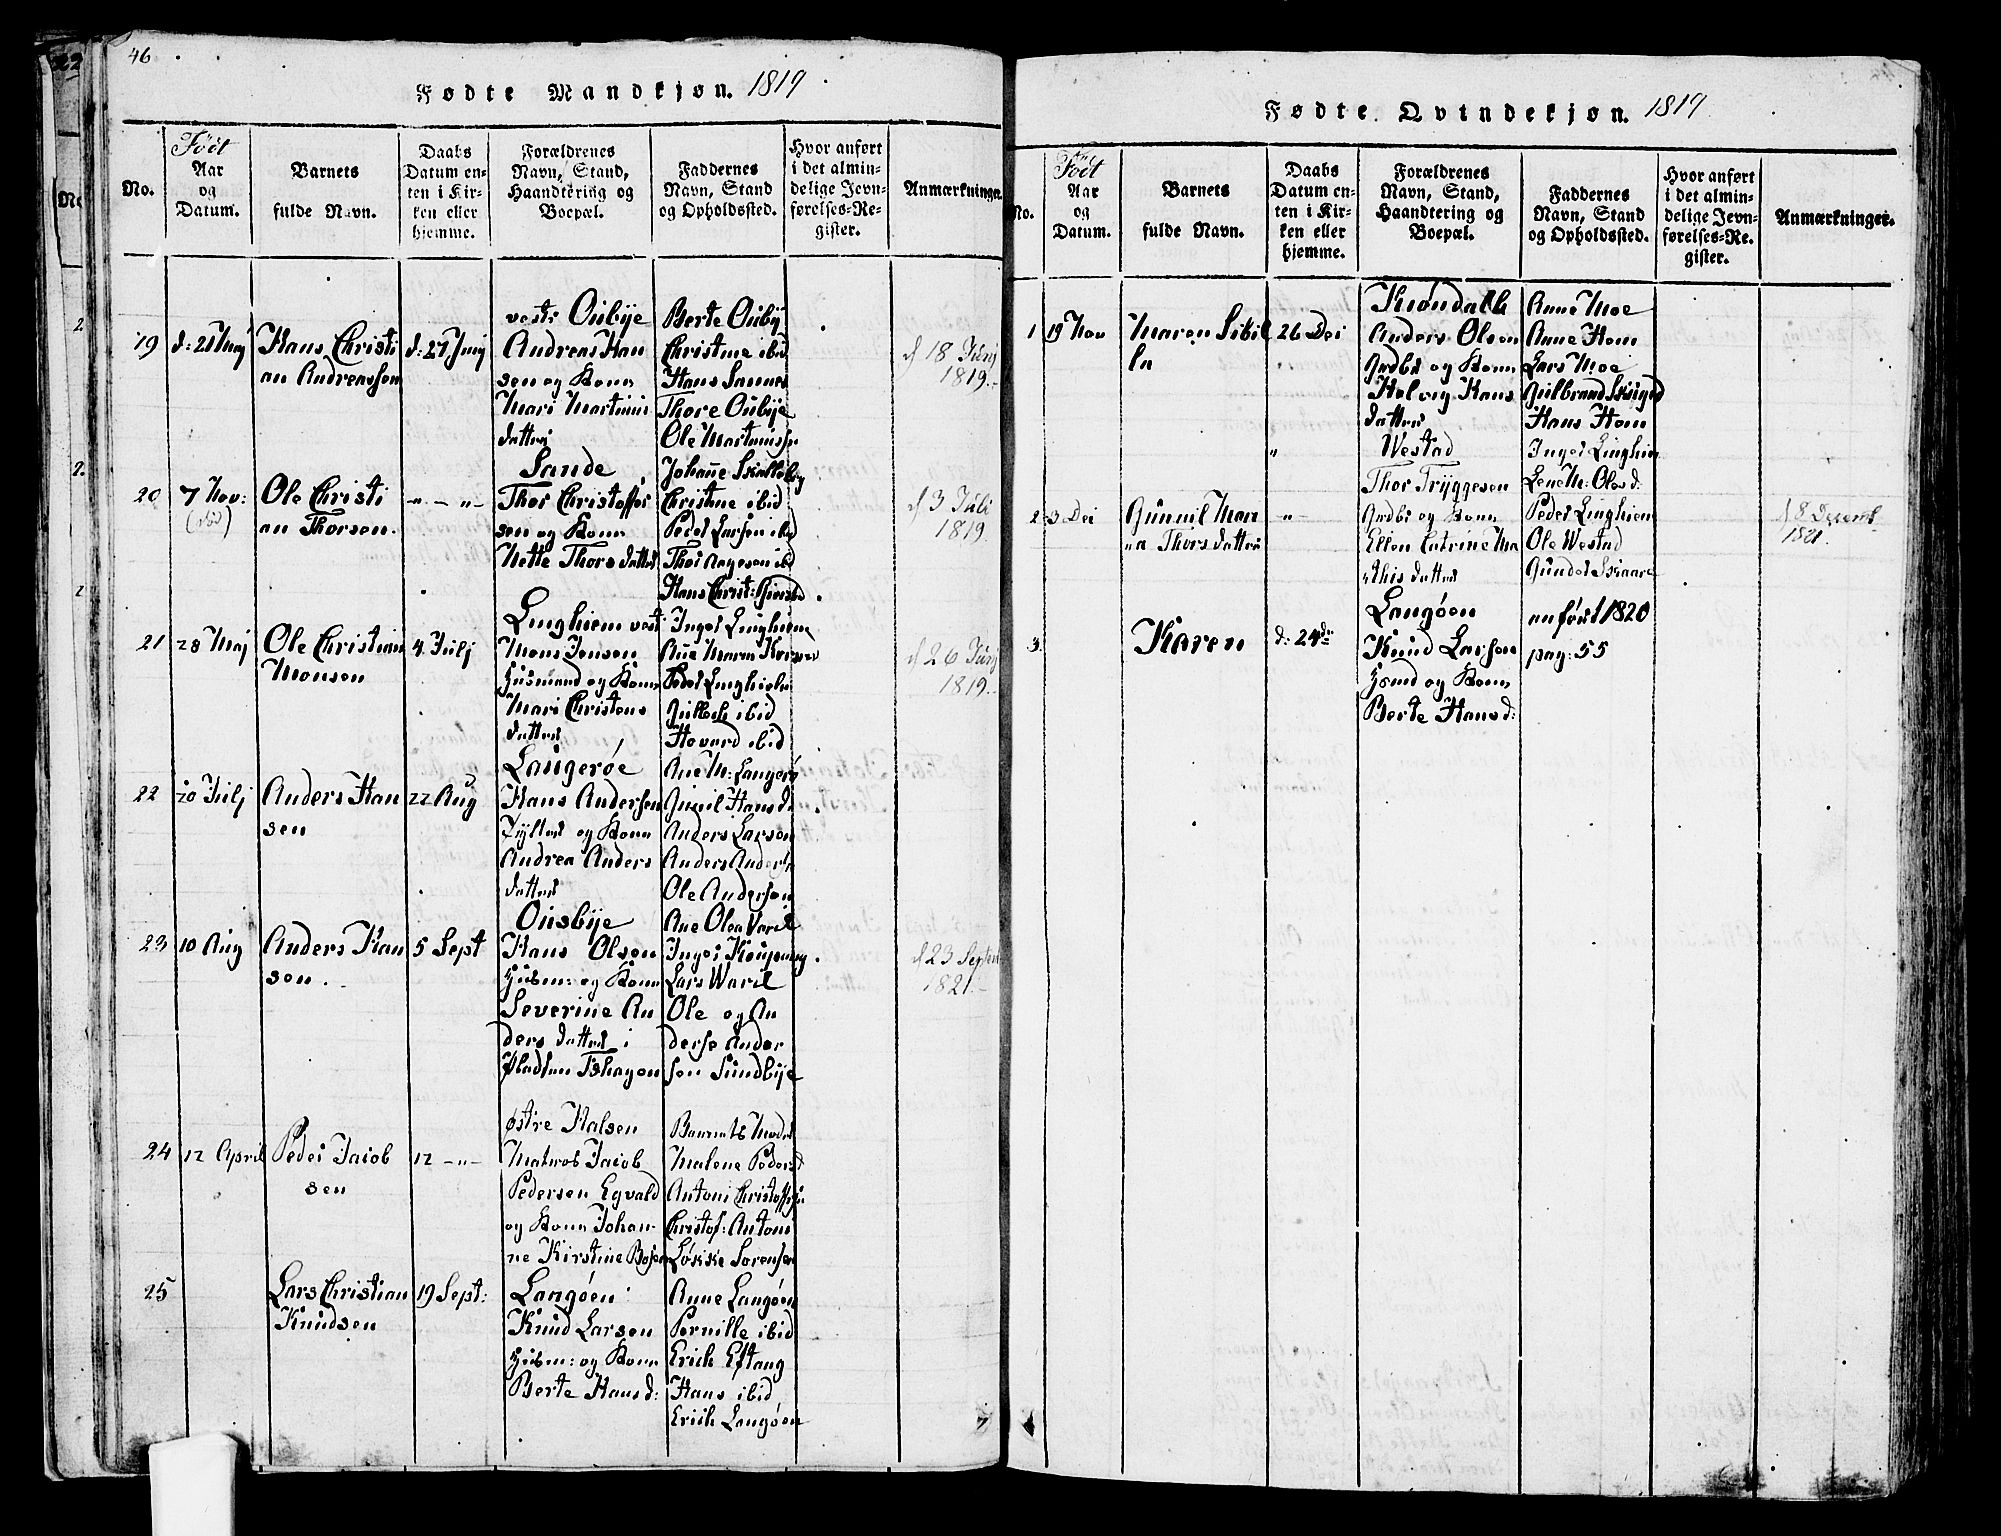 46
Fødte Mandkjøn. 1819
No.
Födt
Aar
og
Datum.
Barnets
fulde Navn.
Daabs
Datum en-
ten i Kir-
ken eller
hjemme.
Forældrenes
Navn, Stand,
Haandtering og
Boepæl.
Faddernes
Navn, Stand
og Opholdssted.
Hvor anført
i det almin-
delige Jevn-
førelses-Re-
gister.
Anmærkninger.
19
d: 21 Maj
Hans Christi
an Andreassen
d: 27 Junj
vestr Ouby
Andreas Han
sen og Kone
Mari Martinus
datter
Berte Ouby
Christine ibid
Hans Sannes
Thore Oubye
Ole Martiniss
d 18 Junj
1819.
20
7 Nov:
Ole Christi
an Thorsen.
Sande
Thor Christoffer
sen og Kone
Mette Thorsdatter
Johanne Skalleby
Christine ibid
Peder Larsen ibid
Thor Aagesen ibid
Hans Christ:
d 3 Juli
1819.
21
28 Maj
Ole Christian
Monsen
4 Julj
Linghiem vest
Mons Jensen
Husmand og Kone
Mari Christens
datter
Inger Linghiem
Ane Maren
Peder Linghiem
Gulbech ibid
Hovard ibid
d 26 Junj
1819.
22
20 Julj
Anders Han
sen
22 Aug
Langeröe
Hans Andersen
og Kone
Andrea Anders
datter
Ane M: Langerö
Gunil Hansd:
Anders Larsen
Anders Anders:
Ole Andersen
23
10 Aug
Anders Han
sen.
5 Sept
Ousbye
Hans Olsen
Husm: og Kone
Severine An
ders datter i
Pladsen
Ane Olea Varil
Inger
Lars Waril
Ole og An
ders Ander
sen Sundbye
d 23 Septem
1821.
24
12 April
Peder Jacob
sen
12 -"-
østre Halsen
Matros Jacob
Pedersen Egvald
og Kone Johan-
ne Kirstine
Barnets Moder
Malene Peders
Antoni Christoffers
Christof: Antoni
Løkke Sørensen
25
Lars Christian
Knudsen
19 Sept:
Langöen
Knud Larsen
Husm: og Kone
Berte Hansd:
Anne Langöen
Pernille ibid
Erich Eftang
Hans ibid
Erich Langöen
Fødte Qvindekjøn. 1819
No.
Födt
Aar
og
Datum.
Barnets
fulde Navn.
Daabs
Datum en-
ten i Kir-
ken eller
hjemme.
Forældrenes
Navn, Stand,
Haandtering og
Boepæl.
Faddernes
Navn, Stand
og Opholdssted.
Hvor anført
i det almin-
delige Jevn-
førelses-Re-
gister.
Anmærkninger.
1
19 Nov
Maren Sibil
la
26 Dec
Anders Olsen
Gdbr og Kone
Helvig Hans
datter
Anne Moe
Anne Hem
Lars Moe
Gulbrand
Hans Hem
2
3 Dec
Gunnil Mar
ia Thorsdatter
Westad
Thor Tryggesen
Gdbr og Kone
Ellen Catrine Ma
thisdatter
Inger Linghiem
Lene M: Olsd:
Peder Linghiem
Ole Westad
Gunder Skaare
d 8 Decemb
1821.
3
Karen
d: 24de
Langöen
Knud Larsen
Hsmd og Kone
Berte Hansd:
anført 1820
pag: 55